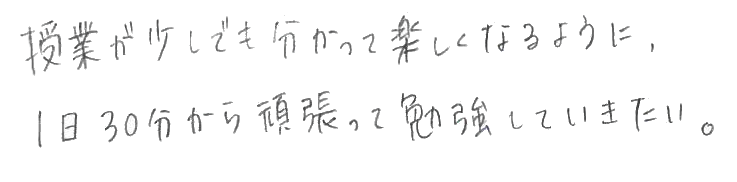 授業が少しでも分かって楽しくなるように，
1日30分から頑張って勉強していきたい。